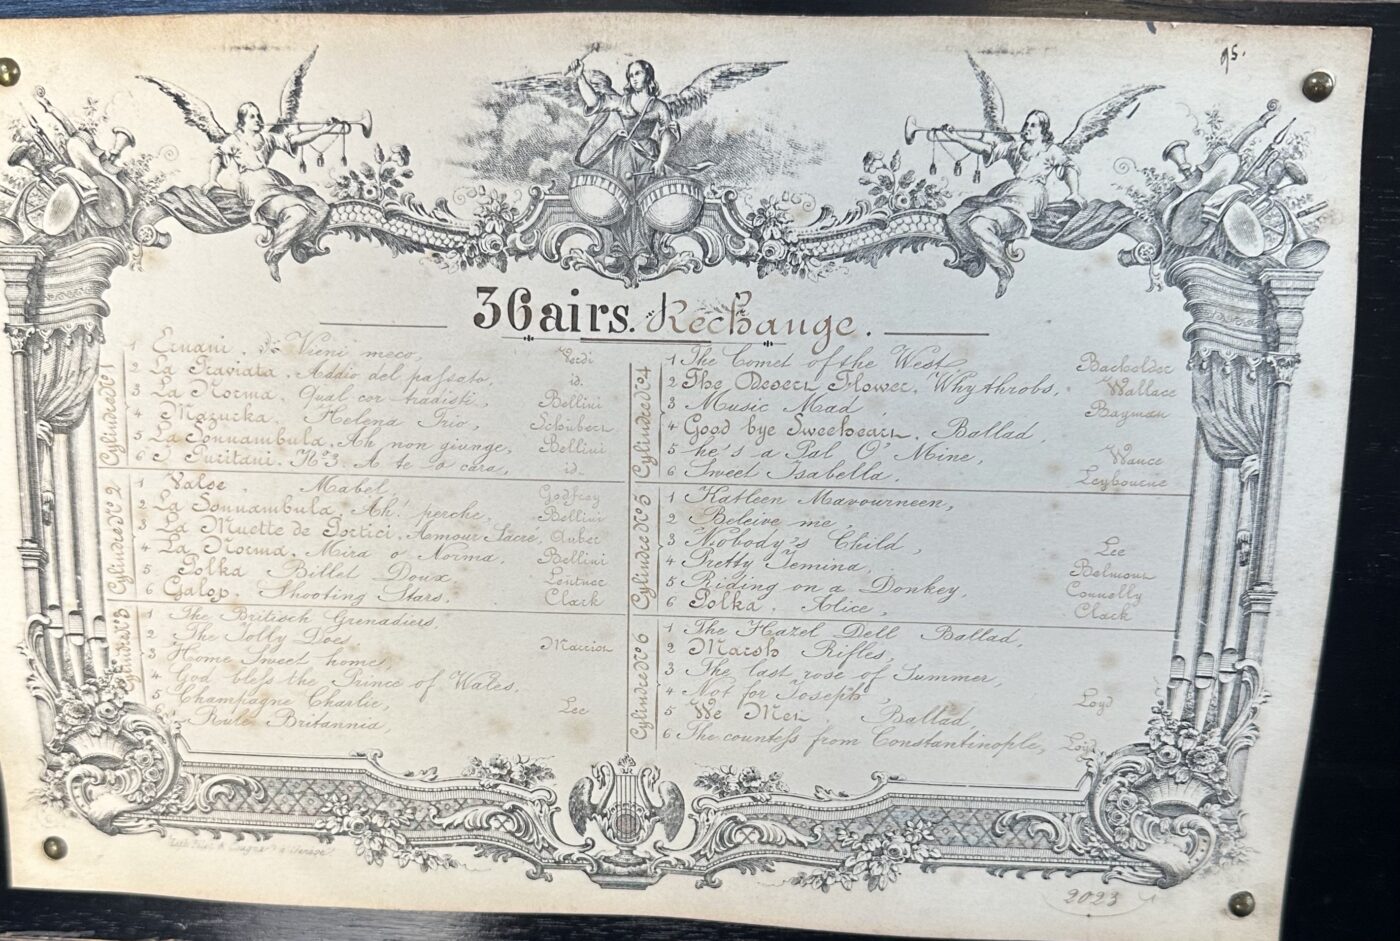 95.
36 airs. Rechange.
Cylindre No 1
1 Ernani. Vieni meco, Verdi
2 La Traviata. Addio del passato, id.
3 La Norma. Qual cor tradisti, Bellini
4 Mazurka. Helena Trio, Schubert
5 La Sonnambula. Ah non giunge, Bellini
6 I Puritani. No 3. A te o cara, id.
Cylindre No 2
1 Valse. Mabel, Godfrey
2 La Sonnambula. Ah! perche, Bellini
3 La Muette de Portici. Amour Sacre, Auber
4 La Norma. Mira o Norma, Bellini
5 Polka Billet Doux
6 Galop. Shooting Stars. Clark
Cylindre No 3
1 The Britisch Grenadiers,
2 The Jolly Does, Marriot
3 Home Sweet home,
4 God bless the Prince of Wales.
5 Champagne Charlie, Lee
6 Rule Britannia,
Cylindre No 4
1 The Comet of the West
2 The Desert Flower. Why throbs, Wallace
3 Music Mad, Bayman
4 Good bye Sweetheart. Ballad,
5 he's a Pal O' Mine, Vance
6 Sweet Isabella. Leybourne
Cylindre No 5
1 Katleen Mavourneen,
2 Beleive me,
3 Nobody's Child, Lee
4 Pretty Jemina, Belmont
5 Riding on a Donkey, Connolly
6 Polka. Alice, Clark
Cylindre No 6
1 The Hazel Dell Ballad,
2 Marsh Rifles,
3 The last rose of Summer,
4 Not for Joseph, Loyd
5 We Met, Ballad
6 The countess from Constantinople, Loyd
2023